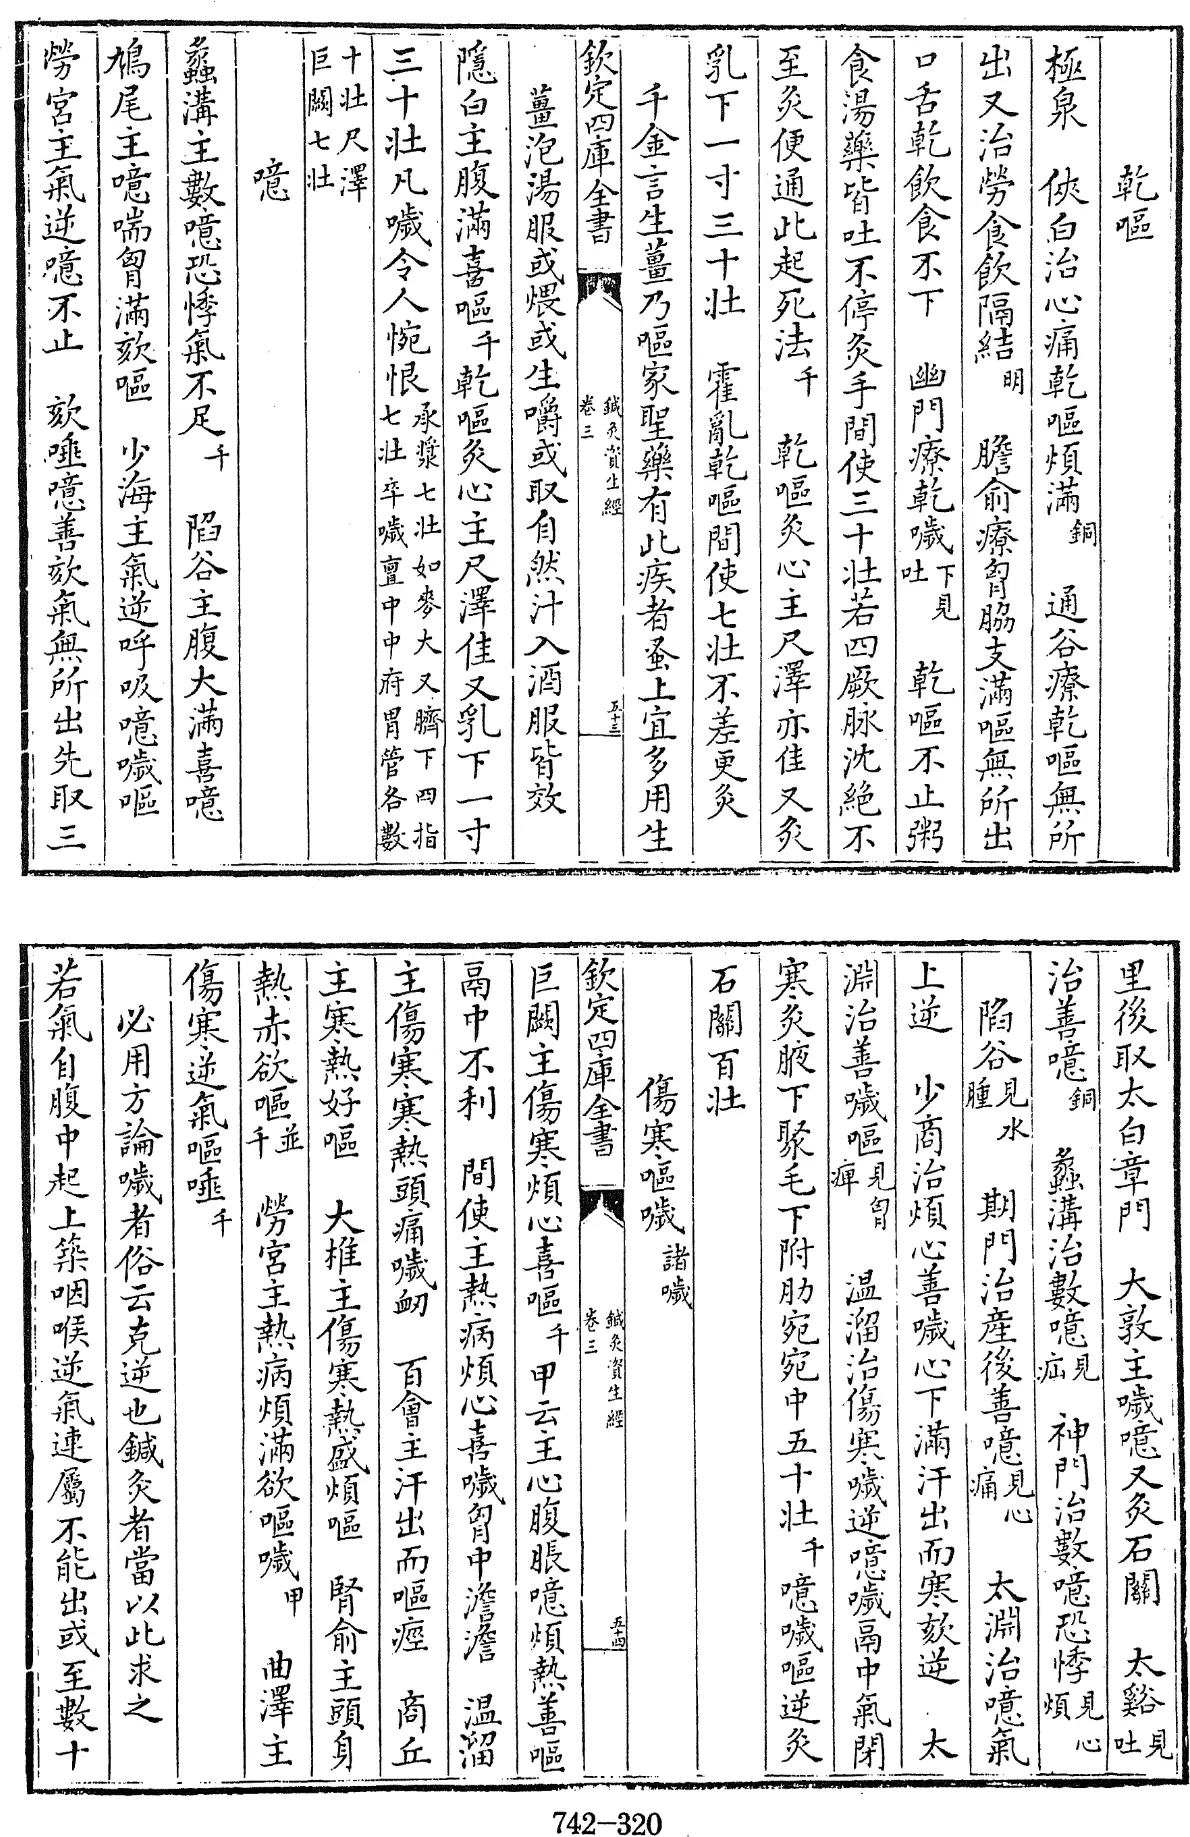 乾嘔
極泉　俠白治心痛乾嘔煩滿銅　通谷療乾嘔無所
出又治勞食飲隔結明　膽俞療胷脇支滿嘔無所出
口舌乾飲食不下　幽門療乾噦下見吐　乾嘔不止粥
食湯藥皆吐不停灸手間使三十壯若四厥脉沈絶不
至灸便通此起死法千　乾嘔灸心主尺澤亦佳又灸
乳下一寸三十壯　霍亂乾嘔間使七壯不差更灸
千金言生薑乃嘔家聖藥有此疾者蚤上宜多用生
欽定四庫全書　鍼灸資生經　卷三　五十三
薑泡湯服或煨或生嚼或取自然汁入酒服皆效
隱白主腹滿喜嘔千乾嘔灸心主尺澤佳又乳下一寸
三十壯凡噦令人惋恨承漿七壯如麥大又臍下四指七壯卒噦亶中中府胃管各數
十壯尺澤巨闕七壯
噫
蠡溝主數噫恐悸氣不足千　陷谷主腹大滿喜噫
鳩尾主噫喘胷滿欬嘔　少海主氣逆呼吸噫噦嘔
勞宮主氣逆噫不止　欬唾噫善欬氣無所出先取三
里後取太白章門　大敦主噦噫又灸石關　太谿見吐
治善噫銅　蠡溝治數噫見疝　神門治數噫恐悸見心煩
陷谷見水腫　期門治産後善噫見心痛　太淵治噫氣
上逆　少商治煩心善噦心下滿汗出而寒欬逆　太
淵治善噦嘔見胷痺　温溜治傷寒噦逆噫噦鬲中氣閉
寒灸腋下聚毛下附肋宛宛中五十壯千　噫噦嘔逆灸
石關百壯
傷寒嘔噦諸噦
欽定四庫全書　鍼灸資生經　卷三　五十四
巨闕主傷寒煩心喜嘔千　甲云主心腹脹噫煩熱善嘔
鬲中不利　間使主熱病煩心喜噦胷中澹澹　温溜
主傷寒寒熱頭痛噦衂　百會主汗出而嘔痙　商丘
主寒熱好嘔　大椎主傷寒熱盛煩嘔　腎俞主頭身
熱赤欲嘔並千　勞宮主熱病煩滿欲嘔噦甲　曲澤主
傷寒逆氣嘔唾千
必用方論噦者俗云克逆也鍼灸者當以此求之
若氣自腹中起上築咽喉逆氣連屬不能出或至數十
742-320